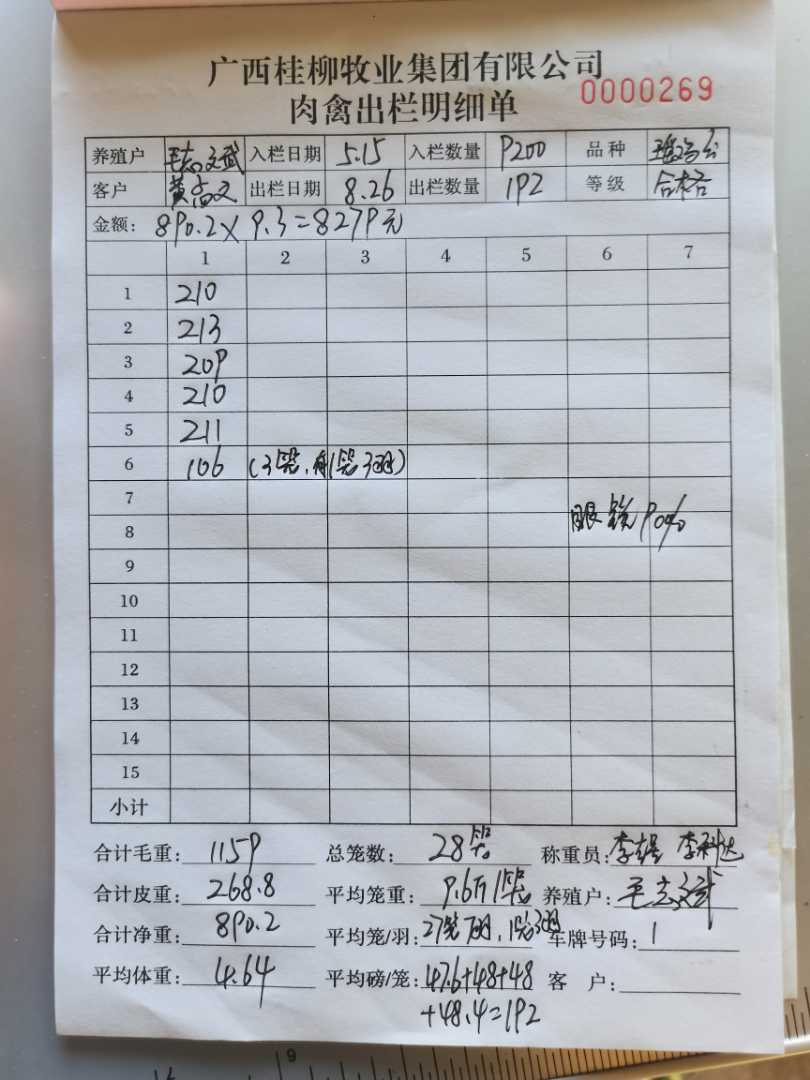 广西桂柳牧业集团有限公司
肉禽出栏明细单 0000269
养殖户 毛志文武 入栏日期 5.15 入栏数量 9200 品种 瑶鸡公
客户 黄尚文 出栏日期 8.26 出栏数量 192 等级 合格
金额: 890.2×9.3=8279元
1 2 3 4 5 6 7
1 210
2 213
3 209
4 210
5 211
6 106 (3笼,有1笼3羽)
7
8 眼镜90%
9
10
11
12
13
14
15
小计
合计毛重: 1159 总笼数: 28笼 称重员: 李 李科达
合计皮重: 268.8 平均笼重: 9.6斤/笼 养殖户: 毛志文武
合计净重: 890.2 平均笼/羽: 27笼7羽,1笼3羽 车牌号码: 1
平均体重: 4.64 平均磅/笼: 47.6+48+48 客 户:
+48.4=192